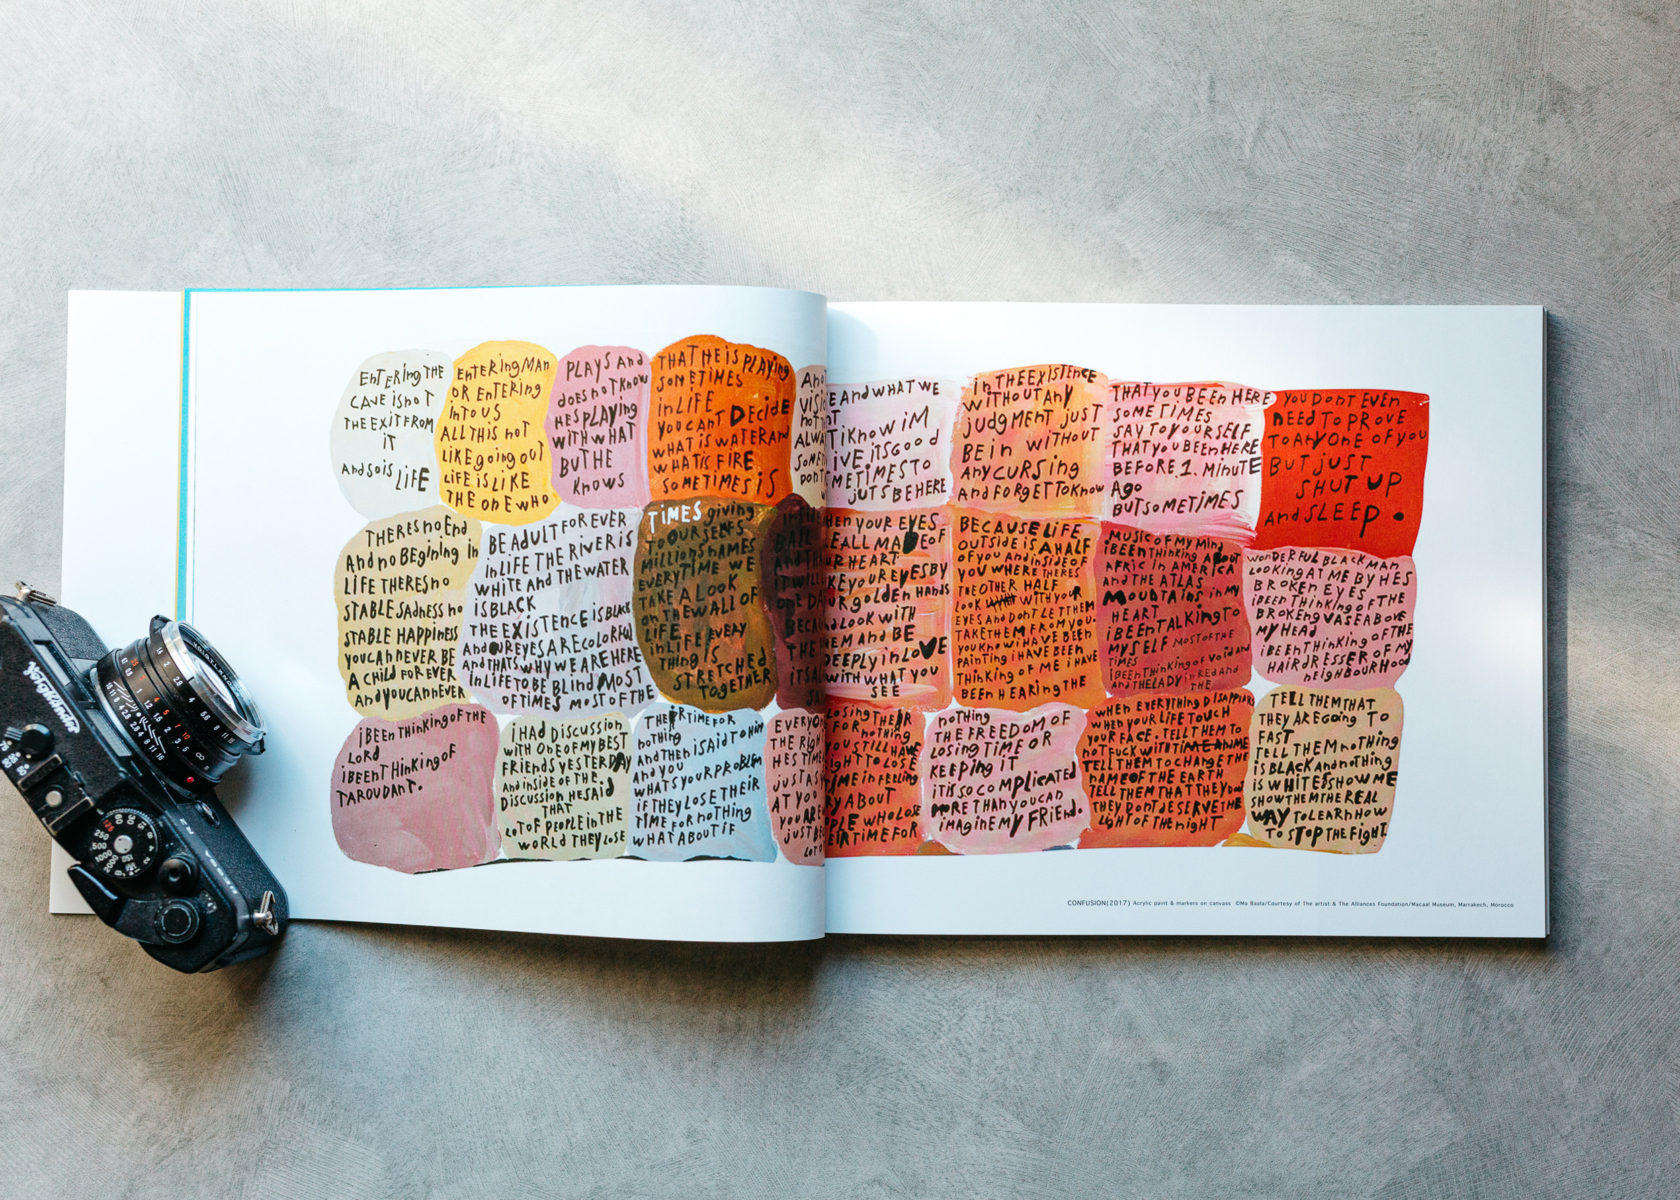 EnTERing THE
CAVE iS noT
THE EXIT FROM
iT
And so is LiFE
EnTERing MAN
OR EnTERing
inTO US
ALL THiS noT
LiKE going ouT
LiFE iS LiKE
THE OnE WHO
PLAYS And
does noT Know
HES PLAYing
WiTH WHAT
BUT HE
Knows
THAT HE iS PLAYing
SOMETIMES
in LiFE
YOU CAnT DEciDE
WHAT iS WATER And
WHAT iS FIRE
SOMETIMES iS
And
VISi
noT
ALWA
SOMET
DONT
E And WHAT WE
T i Know iM
iVE iTS Good
METIMES TO
JUTS BE HERE
in THE EXISTENCE
WiTHOUT Any
JUdgMENT JUST
BE in WiTHOUT
Any CURSing
And FORGET TO Know
THAT YOU BEEN HERE
SOMETIMES
SAY TO YOURSELF
THAT YOU BEEN HERE
BEFORE 1. MinUTE
Ago
BUT SOMETIMES
YOU DONT EVEN
nEED TO PROVE
TO Any ONE OF YOU
BUT JUST
SHUT UP
And SLEEP.
THERES no End
And no BEgining in
LiFE THERES no
STABLE SAdnESS no
STABLE HAPPINESS
YOU CAn nEVER BE
A CHILD FOR EVER
And YOU CAn nEVER
BE AdULT FOR EVER
in LiFE THE RiVER iS
WHiTE And THE WATER
iS BLACK
THE EXISTENCE iS BLACK
And OUR EYES ARE COLORFUL
And THATS WHY WE ARE HERE
in LiFE TO BE BLind MOST
OF TIMES MOST OF THE
TiMES giving
TO OURSELFS
MILLIONS NAMES
EVERY TIME WE
TAKE A LOOK
on THE WALL OF
LiFE
in LiFE EVERY
THing iS
STRETCHEd
TOGETHER
HEn YOUR EYES
E ALL MADE OF
UR HEART
KE YOUR EYES BY
UR gOLdEn HAndS
nd LOOK WiTH
EM And BE
EEPLY in LOVE
WiTH WHAT YOU
SEE
BECAUSE LiFE
OUTSIDE iS A HALF
OF YOU And inSidE OF
YOU WHERE THERES
THE OTHER HALF
LOOK WiTH YOUR
EYES And DONT LET THEM
TAKE THEM FROM YOU.
YOU Know i HAVE BEEN
PAinTing i HAVE BEEN
THinKing OF ME i HAVE
BEEn HEARing THE
MUSiC OF MY Mind
i BEEN THinKing ABOUT
AFRiC in AMERiCA
And THE ATLAS
MOUnTAinS in MY
HEART
i BEEN TALKING TO
MYSELF MOST OF THE
TiMES
i BEEN THinKing OF Void And
And THE LADY in REd And
THE
WonDERFUL BLACK MAN
LOOKing AT ME BY HES
BROKEn EYES
i BEEN THinKing OF THE
BROKEn VASE ABOVE
MY HEAd
i BEEN THinKing OF THE
HAiRdRESSER OF MY
nEiGHBOURHOOd
i BEEN THinKing OF THE
LORd
i BEEN THinKing OF
TAROUdANT.
i HAd DISCUSSION
WiTH ONE OF MY BEST
FRiEndS YESTERDAY
And inSidE OF THE
DiSCUSSiOn HE SAid
THAT
LOT OF PEOPLE in THE
WORLD THEY LOSE
THEiR TiME FOR
noTHing
And THEn iS AiD TO HiM
And YOU
WHATS YOUR PROBLEM
iF THEY LOSE THEiR
TiME FOR noTHing
WHAT ABOUT iF
EVERYO
THE RigH
HES TiME
JUST AS
AT YOU
YOU ARE
JUST BE
LOT O
LOSing THEiR
OR noTHing
OU STiLL HAVE
gHT TO LOSE
TiME in FEELing
RY ABOUT
PLE WHO LOSE
EiR TiME FOR
noTHing
THE FREEDOM OF
LOSing TIME OR
KEEPing iT
iT iS SO COMPLiCATEd
MORE THAn YOU CAn
iMAginE MY FRiEnd.
WHEN EVERYTHing DiSAPPEARS
WHEN YOUR LiFE TOUCH
YOUR FACE. TELL THEM TO
noT FUCK WiTH TiME AnYMORE
TELL THEM TO CHANGE THE
NAME OF THE EARTH
TELL THEM THAT THEY DONT
THEY DONT dESERVE THE
LIGHT OF THE nigHT
TELL THEM THAT
THEY ARE Going TO
FAST
TELL THEM noTHing
iS BLACK And noTHing
iS WHiTE & SHOW ME
SHOW THEM THE REAL
WAY TO LEARN HOW
TO STOP THE FigHT.
CONFUSION(2017) Acrylic paint & markers on canvass ©Mo Baala/Courtesy of The artist & The Alliances Foundation/Macaal Museum, Marrakech, Morocco
Voigtländer